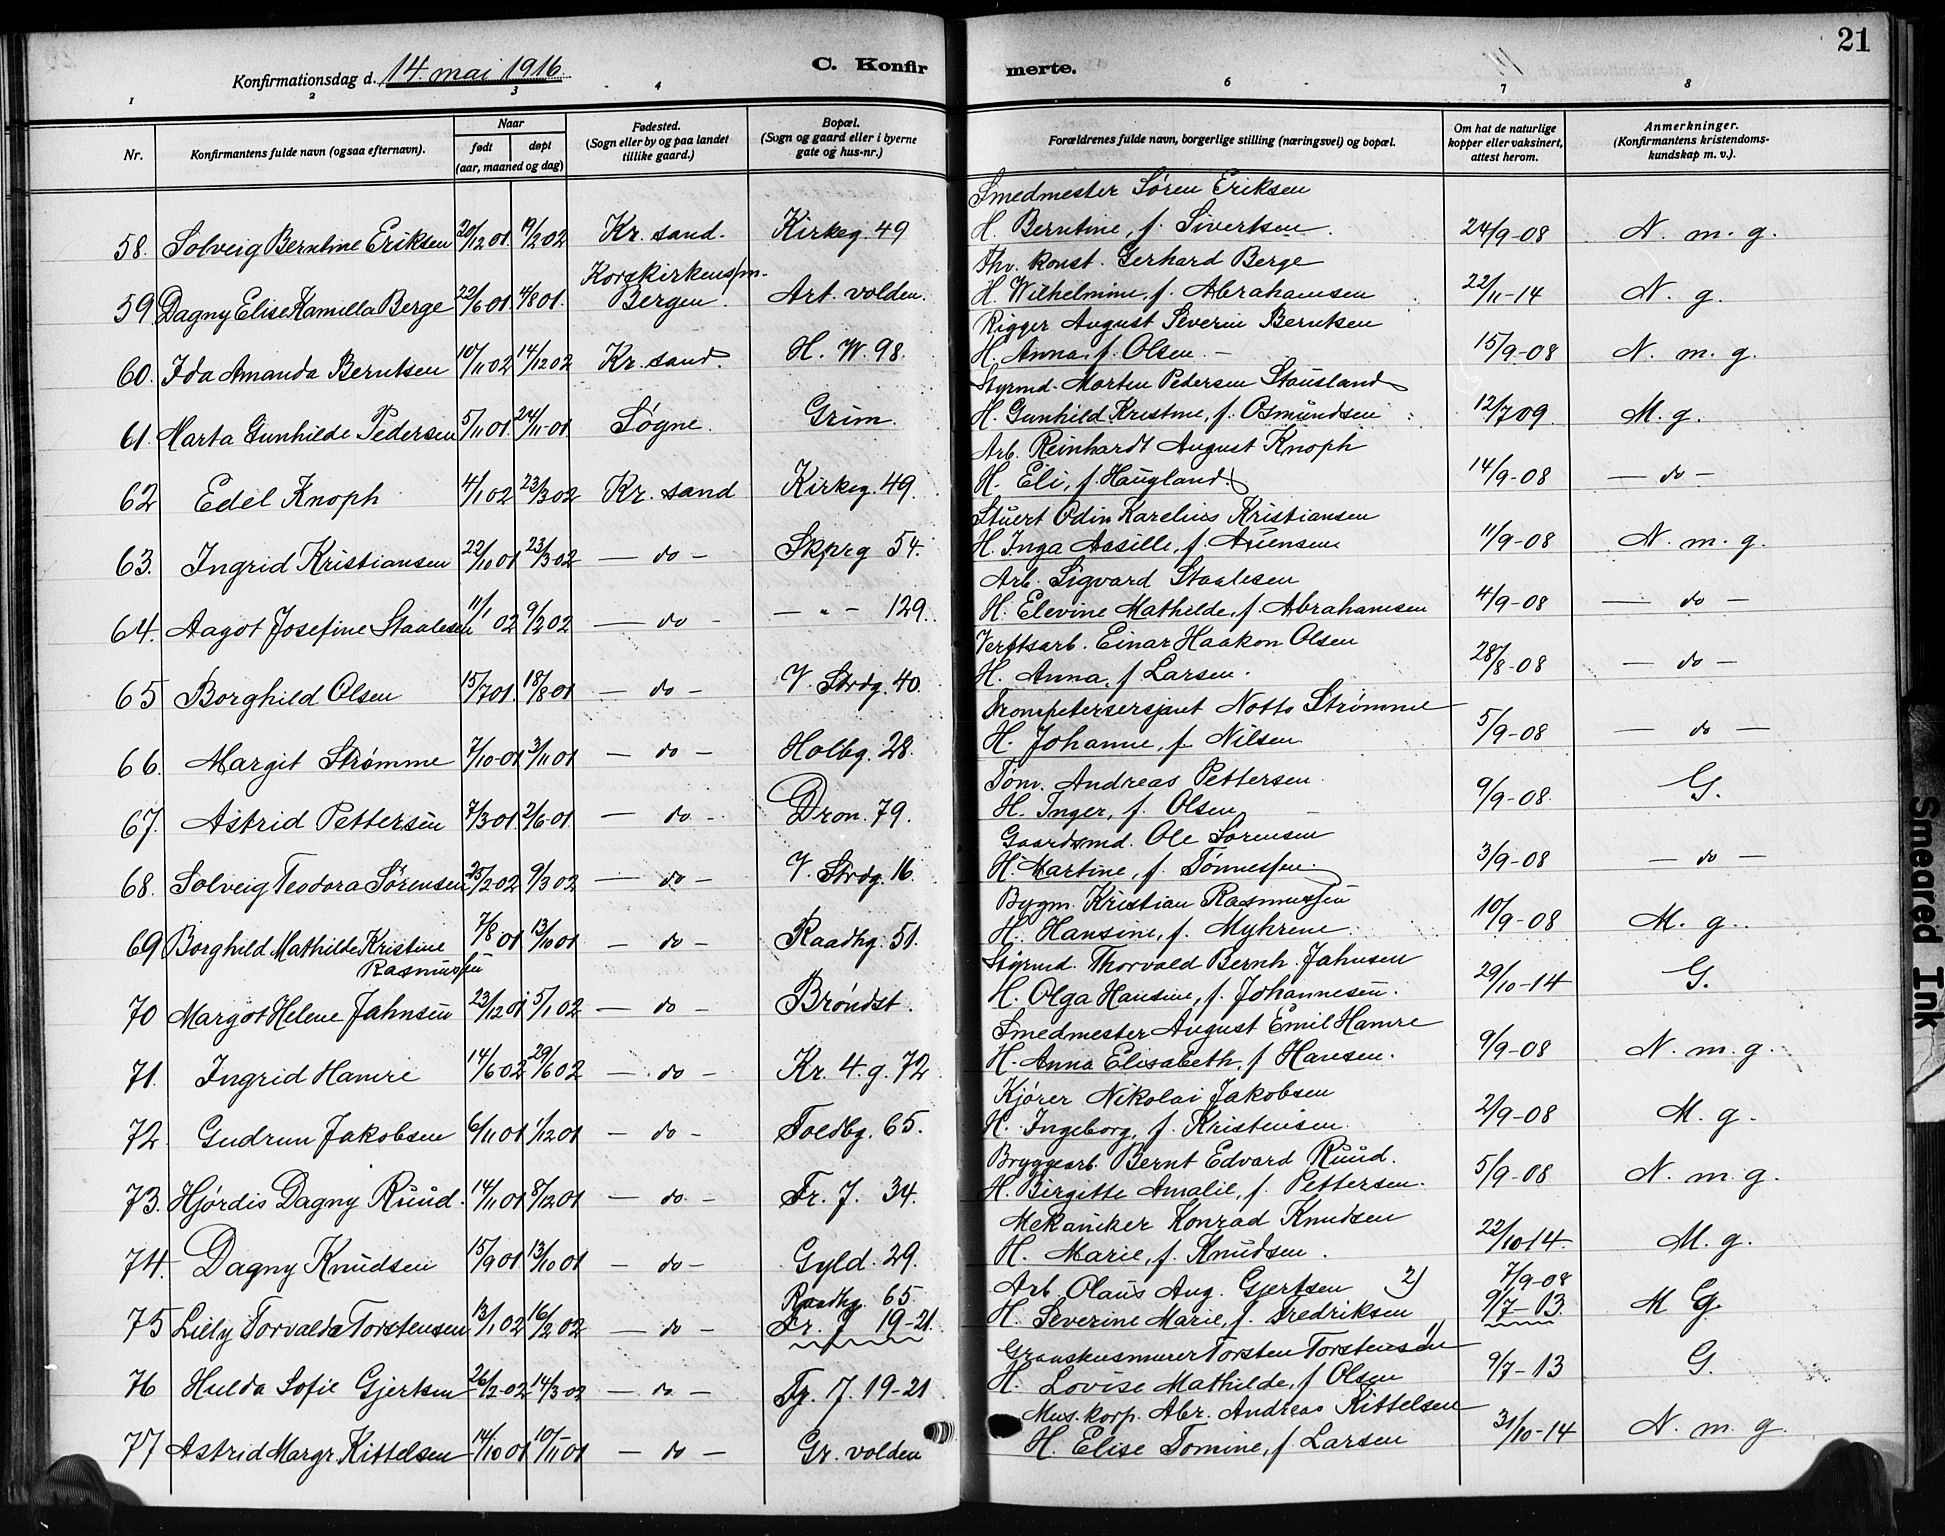 21
Konfirmationsdag d. 14. mai 1916
C. Konfirmerte.
1 2 3 4 6 7 8
Nr.
Konfirmantens fulde navn (ogsaa efternavn).
Naar
født døpt
(aar, maaned og dag)
Fødested.
(Sogn eller by og paa landet
tillike gaard.)
Bopæl.
(Sogn og gaard eller i byerne
gate og hus-nr.)
Forældrenes fulde navn, borgerlige stilling (næringsvei) og bopæl.
Om hat de naturlige
kopper eller vaksinert,
attest herom.
Anmerkninger.
(Konfirmantens kristendoms-
kundskap m. v.).
Smedmester Søren Eriksen
58. Solveig Berntine Eriksen 20/12 01. 19/2 02 Kr. sand. Kirkeg. 49 H. Berntine, f. Sivertsen. 24/9-08 N. m. g.
Korskirkens pr.
Thv. konst. Gerhard Berge
59 Dagny Elise Kamilla Berge 22/6 01. 4/8 01. Bergen. Art. volden. H. Wilhelmine, f. Abrahamsen 22/11-14 N. g.
Rigger August Severin Berntsen
60. Ida Amanda Berntsen 10/11 02 14/12 02 Kr. sand. H. W. 98. H. Anna, f. Olsen. - 15/9-08 N. m. g.
Styrmd. Morten Pedersen Stausland
61. Marta Gunhilde Pedersen 5/11 01. 24/11 01 Søgne. Grim. H. Gunhild Kristine, f. Osmundsen 12/7 09. M. g.
Arb. Reinhardt August Knoph
62 Edel Knoph 4/1 02 23/3 02 Kr. sand Kirkeg. 49. H. Eli, f. Haugland. 14/9-08 — do —
Stuert Odin Karelius Kristiansen
63. Ingrid Kristiansen 22/10 01 23/3 02 — do — Skprg 54. H. Inga Aasille, f. Auensen 11/9-08 N. m. g.
Arb. Sigvard Staalesen
64. Aagot Josefine Staalesen 11/1 02 9/2 02 — do — — " — 129. H. Elevine Mathilde, f. Abrahamsen 4/9-08 — do —
Verftsarb. Einar Haakon Olsen
65 Borghild Olsen 15/7 01. 18/8 01 — do — V. Strdg. 40. H. Anna, f. Larsen. 28/8-08 — do —
Trompetersersjant Notto Strømme
66. Margit Strømme 7/10-01 3/11 01 — do — Holbg. 28. H. Johanne, f. Nilsen 5/9-08 — do —
Tøm. Andreas Pettersen.
67. Astrid Pettersen 7/3 01 2/6-01 — do — Dron. 79. H. Inger, f. Olsen. 9/9-08. G.
Gaardsmd. Ole Sørensen
68. Solveig Teodora Sørensen 25/2-02 9/3 02 — do — V. Strdg. 16 H. Martine, f. Tønnessen. 3/9-08 — do —
Bygm. Kristian Rasmussen
69 Borghild Mathilde Kristine 7/8 01 13/10 01 — do — Raadhg. 51. H. Hansine, f. Myhrene. 10/9-08 M. g.
Rasmussen
Styrmd. Thorvald Bernh. Jahnsen
70 Margot Helene Jahnsen 23/12 01 5/1 02 — do — Brøndst. H. Olga Hansine, f. Johannesen. 29/10-14 G.
Smedmester August Emil Hamre
71. Ingrid Hamre 14/6 02 29/6 02 — do — Kr. 4. g. 72 H. Anna Elisabeth, f. Hansen. 9/9-08 N. m. g.
Kjører Nikolai Jakobsen
72 Gudrun Jakobsen 6/11 01 1/12 01 — do — Toldbg. 65. H. Ingeborg, f. Kristensen. 2/9-08 M. g.
Bryggearb. Bernt Edvard Ruud.
73. Hjørdis Dagny Ruud. 14/11 01 8/12 01 — do — Fr. 7. 34. H. Birgitte Amalie, f. Pettersen. 5/9-08 N. m. g.
Mekaniker Konrad Knudsen
74. Dagny Knudsen 15/9 01 13/10 01 — do — Gyld. 29. H. Marie, f. Knudsen. 22/10-14. M. g.
Raadhg. 65 Arb. Olaus Aug. Gjertsen 2) 7/9-08
75 Lilly Torvalda Torstensen 13/1 02 16/2 02 — do — Fr. 7 19-21. H. Severine Marie, f. Fredriksen 9/7-13 M G.
Graaskensmurer Torsten Torstensen 1)
76 Hulda Sofie Gjertsen 26/2-02 14/3-02 — do — Fr. 7. 19-21 H. Lovise Mathilde, f. Olsen 9/7-13 G.
Mus. korp. Abr. Andreas Kittelsen
77 Astrid Margr. Kittelsen 14/10 01 10/11 01 — do — Gr. volden H. Elise Tomine, f. Larsen 31/10-14 N. m. g.
Smeared Ink